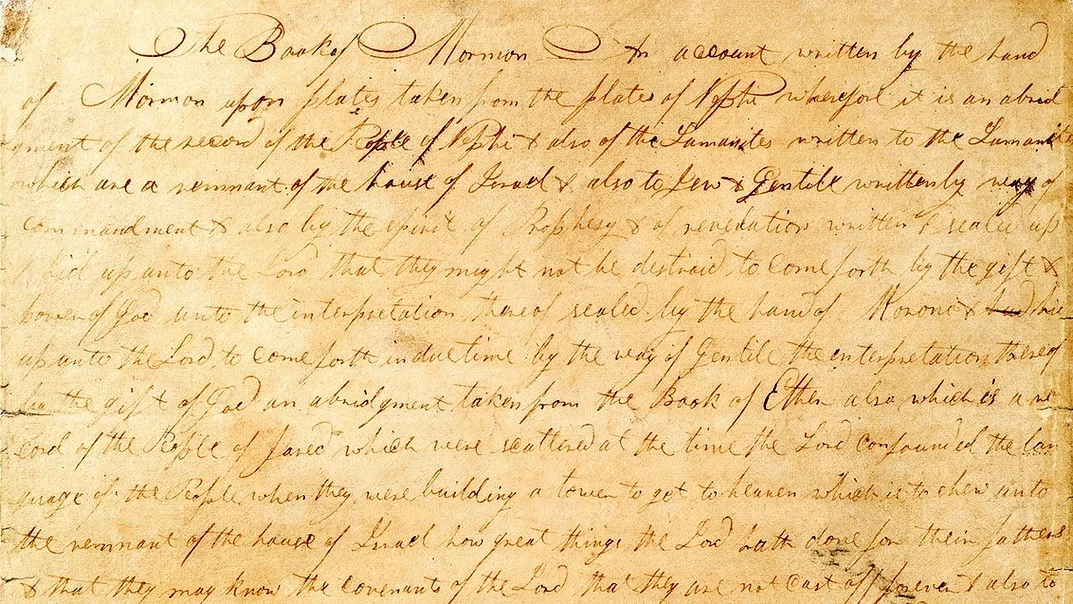 The Book of Mormon An account written by the hand
of Mormon upon plates taken from the plates of Nephi wherefore it is an abrid
gment of the record of the People of Nephi & also of the Lamanites written to the Lamanites
which are a remnant of the house of Israel & also to Jew & Gentile written by way of
commandment & also by the spirit of Prophesy & of revelation written & sealed up
& hid up unto the Lord that they might not be destroid to come forth by the gift &
power of God unto the interpretation thereof sealed by the hand of Moroni & hid
up unto the Lord to come forth in due time by the way of Gentile the interpretation thereof
by the gift of God an abridgment taken from the Book of Ether also which is a re
cord of the People of Jared which were scattered at the time the Lord confounded the lan
guage of the People when they were building a tower to get to heaven which is to shew unto
the remnant of the house of Israel how great things the Lord hath done for their fathers
& that they may know the covenants of the Lord that they are not cast off forever & also to